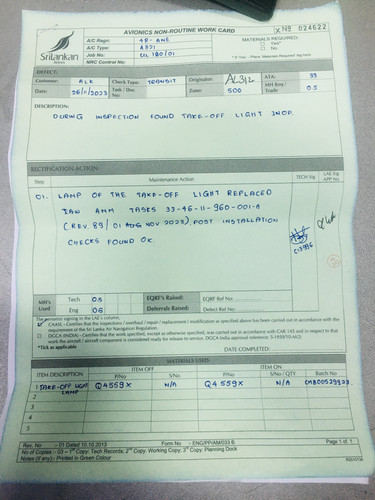 AVIONICS NON-ROUTINE WORK CARD
X No 024622
SriLankan
Airlines
A/C Regn: 4R-ANE
A/C Type: A321
Job No: UL 180/01
NRC Control No:
MATERIALS REQUIRED:
Yes*
No
DEFECT:
Customer: ALK
Check Type: TRANSIT
Origination:
ATA: 33
Date: 26/11/2023
Task / Doc No:
Zone: 500
MH Rmg / Trade 0.5
DESCRIPTION:
DURING INSPECTION FOUND TAKE-OFF LIGHT INOP.
RECTIFICATION ACTION:
Step
Maintenance Action
TECH Sig
LAE Sig APP No.
01. LAMP OF THE TAKE-OFF LIGHT REPLACED
IAW AMM TASKS 33-46-11-960-001-A
(REV. 89/ 01 NOV 2023). POST INSTALLATION
CHECKS FOUND OK.
MH's Used
Tech 0.5
EQRF's Raised:
EQRF Ref No:
Eng 0.5
Deferrals Raised:
Defect Ref No:
The person signing in the LAE's column,
CAASL - Certifies that the inspections / overhaul / repair / replacement / modification as specified above has been carried out in accordance with the requirement of the Sri Lanka Air Navigation Regulation.
DGCA (INDIA) - Certifies that the work specified, except as otherwise specified, was carried out in accordance with CAR 145 and in respect to that work the aircraft / aircraft component is considered ready for release to service.
*Tick as applicable
DATE COMPLETED:
MATERIALS USED
ITEM DESCRIPTION
ITEM OFF
ITEM ON
P/No
S/No
P/No
S/No / QTY
Batch No
1 TAKE-OFF LIGHT LAMP
Q4559X
N/A
Q4559X
N/A
2
3
4
5
Rev. No :- 01 Dated 10.10.2013
Form No :- ENG/PP/AM/033 B
Page 1 of 1
No of Copies :- 03 – 1st Copy: Tech Records; 2nd Copy: Working Copy, 3rd Copy: Planning Dock
Notes (if any):- Printed in Green Colour